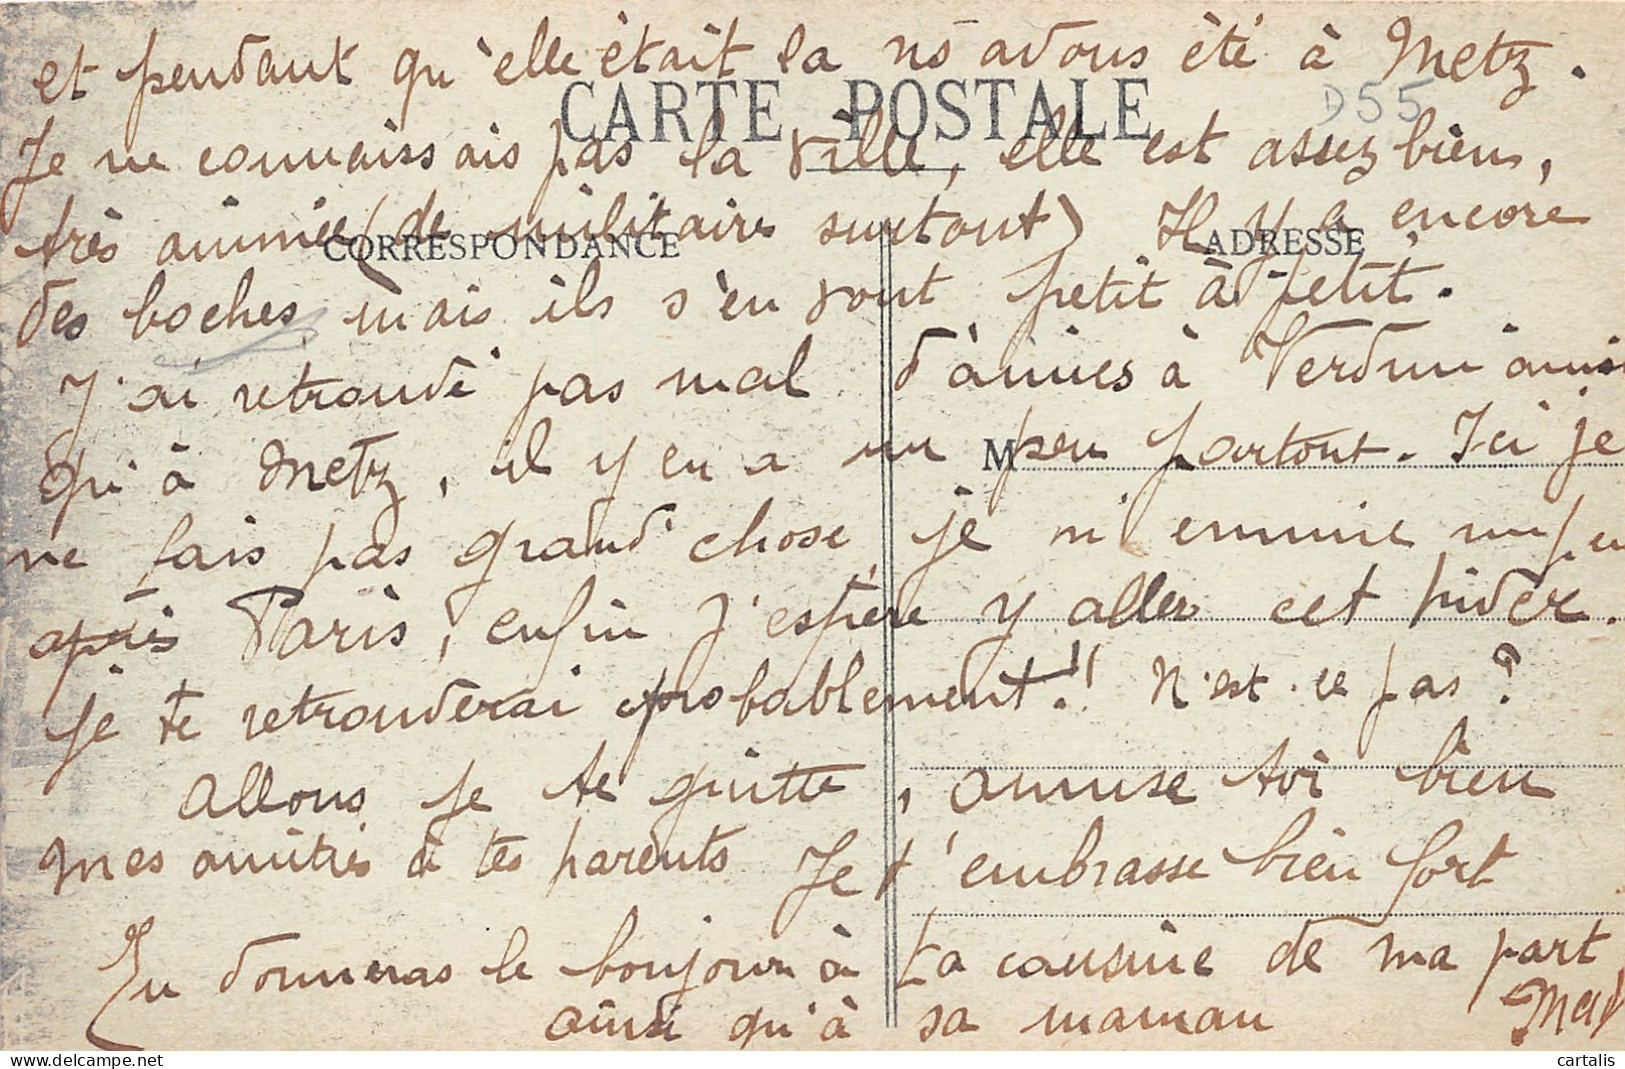 et pendant qu'elle était la ns avons été à Metz.
CARTE POSTALE
D55
Je ne connaissais pas la ville, elle est assez bien,
très animée (de militaires surtout) Il y a encore
CORRESPONDANCE
ADRESSE
des boches, mais ils s'en vont petit à petit.
J'ai retrouvé pas mal d'amies à Verdun ainsi
qu'à Metz, il y en a un peu partout. Ici je
M
ne fais pas grand'chose, je m'ennuie un peu
après Paris, enfin j'espère y aller cet hiver.
je te retrouverai probablement!! N'est-ce pas?
Allons je te quitte, amuse toi bien
Mes amitiés à tes parents Je t'embrasse bien fort
Tu donneras le bonjour à ta cousine de ma part
ainsi qu'à sa maman Mad
cartalis